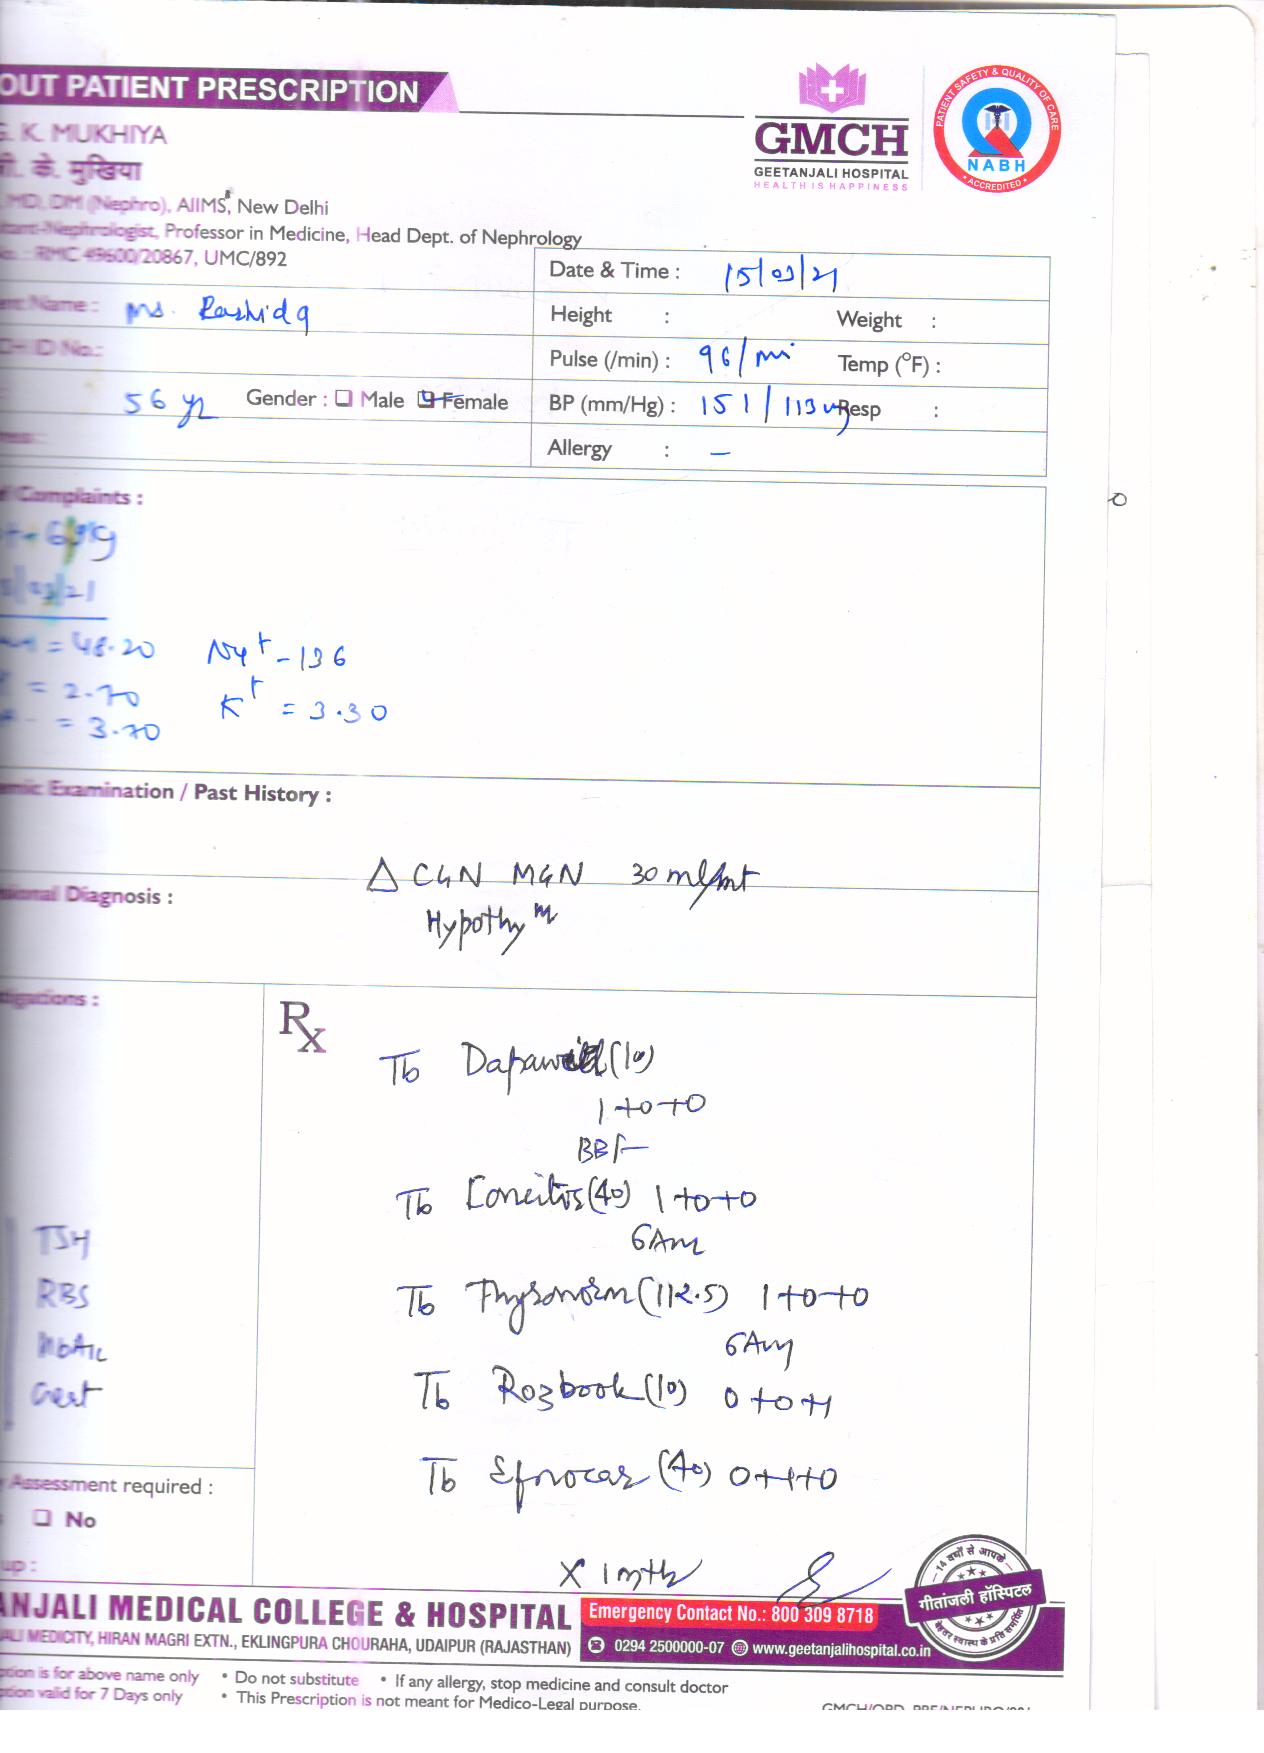 OUT PATIENT PRESCRIPTION
GMCH
GEETANJALI HOSPITAL
HEALTH IS HAPPINESS
PATIENT SAFETY & QUALITY OF CARE
NABH
ACCREDITED
G. K. MUKHIYA
जी. के. मुखिया
MD, DM (Nephro), AIIMS, New Delhi
ltant-Nephrologist, Professor in Medicine, Head Dept. of Nephrology
No. : RMC 49600/20867, UMC/892
Date & Time : 15/03/21
ent Name : Ms. Rashida
Height : Weight :
CH ID No.:
Pulse (/min) : 96/mi Temp (°F) :
56 yr Gender : Male Female
BP (mm/Hg) : 151/113 Resp :
ress :
Allergy : –
f Complaints :
/03/21
= 48.20 Na+ - 136
= 2.70 K+ = 3.30
= 3.70
emic Examination / Past History :
Δ CGN MGN 30 ml/mt
sional Diagnosis :
Hypothym
tigations :
Rx
Tb (10)
1+0+0
BBF
Tb (40) 1+0+0
6Am
Tb Thyronorm (112.5) 1+0+0
6Am
TSH
RBS
HbA1c
Creat
Tb Rozbook (10) 0+0+1
Tb (40) 0+1+0
Assessment required :
No
up :
x 1 mth
14 वर्षों से आपके
गीतांजली हॉस्पिटल
ANJALI MEDICAL COLLEGE & HOSPITAL
Emergency Contact No.: 800 309 8718
ALI MEDICITY, HIRAN MAGRI EXTN., EKLINGPURA CHOURAHA, UDAIPUR (RAJASTHAN)
0294 2500000-07 www.geetanjalihospital.co.in
ption is for above name only • Do not substitute • If any allergy, stop medicine and consult doctor
ption valid for 7 Days only • This Prescription is not meant for Medico-Legal purpose.